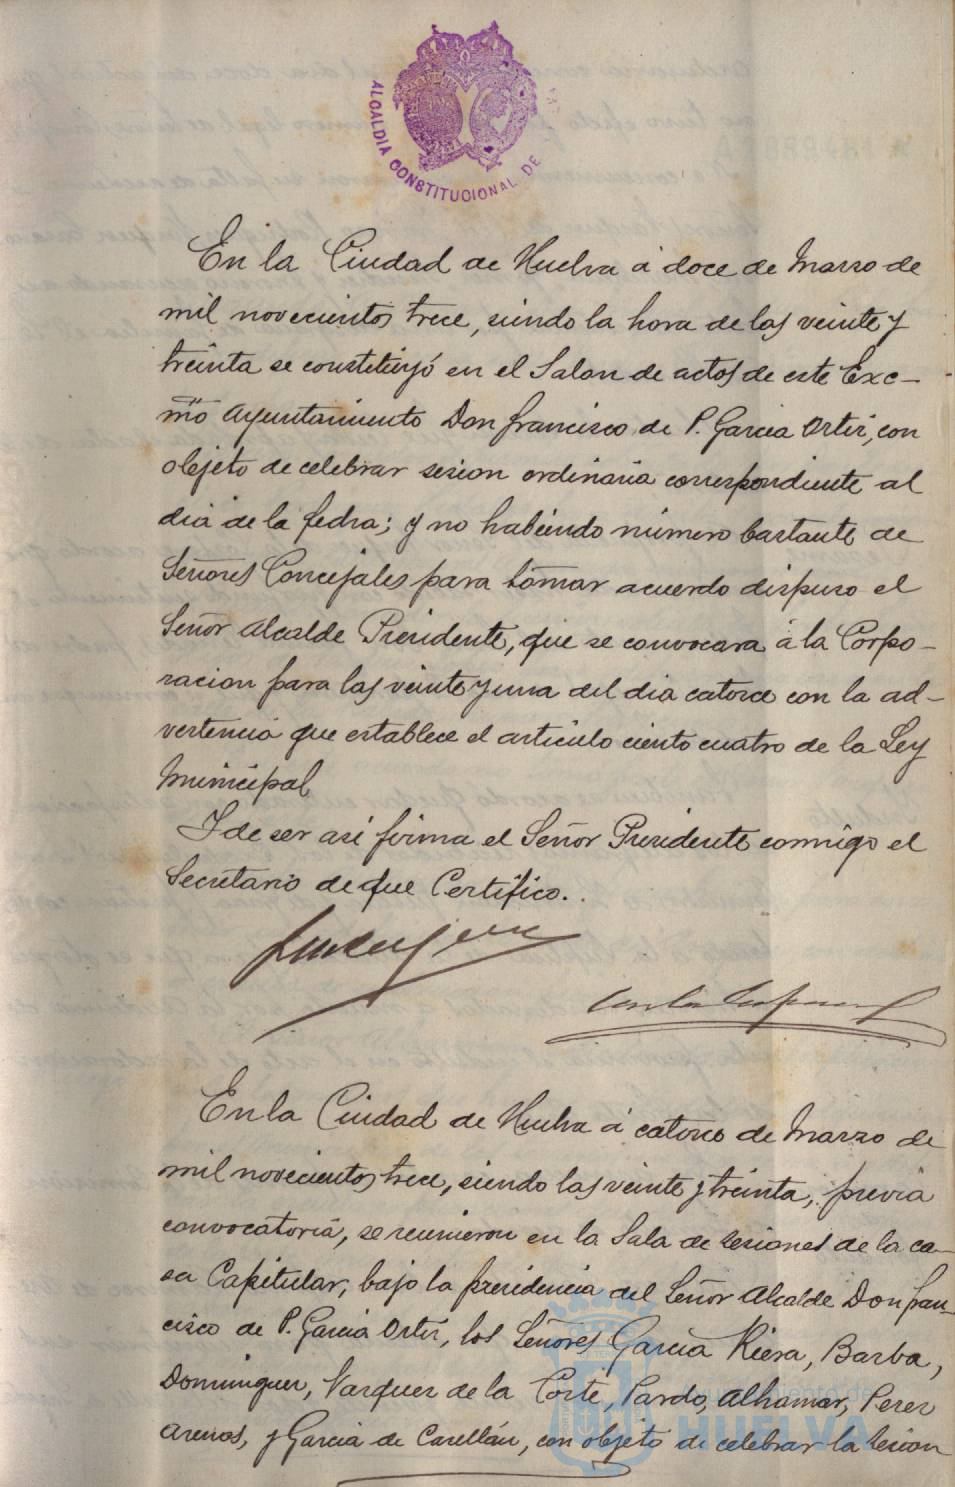 ALCALDIA CONSTITUCIONAL DE
En la Ciudad de Huelva á doce de Marzo de
mil novecientos trece, siendo la hora de las veinte y
treinta se constituyó en el Salon de actos de este Exc-
mo Ayuntamiento Don Francisco de P. Garcia Ortiz, con
objeto de celebrar sesion ordinaria correspondiente al
dia de la fecha; y no habiendo número bastante de
Señores Concejales para tomar acuerdo dispuso el
Señor Alcalde Presidente, que se convocara á la Corpo-
racion para las veinte y una del dia catorce con la ad-
vertencia que establece el articulo ciento cuatro de la Ley
Municipal
Y de ser asi firma el Señor Presidente conmigo el
Secretario de que Certifico.
En la Ciudad de Huelva á catorce de Marzo de
mil novecientos trece, siendo las veinte y treinta, previa
convocatoria, se reunieron en la Sala de sesiones de la ca-
sa Capitular, bajo la presidencia del Señor Alcalde Don Fran-
cisco de P. Garcia Ortiz, los Señores Garcia Riera, Barba,
Dominguez, Vazquez de la Corte, Pardo, Alhamar, Perez
Arenas, y Garcia de Casellán, con objeto de celebrar la Sesion
Ayuntamiento de
HUELVA